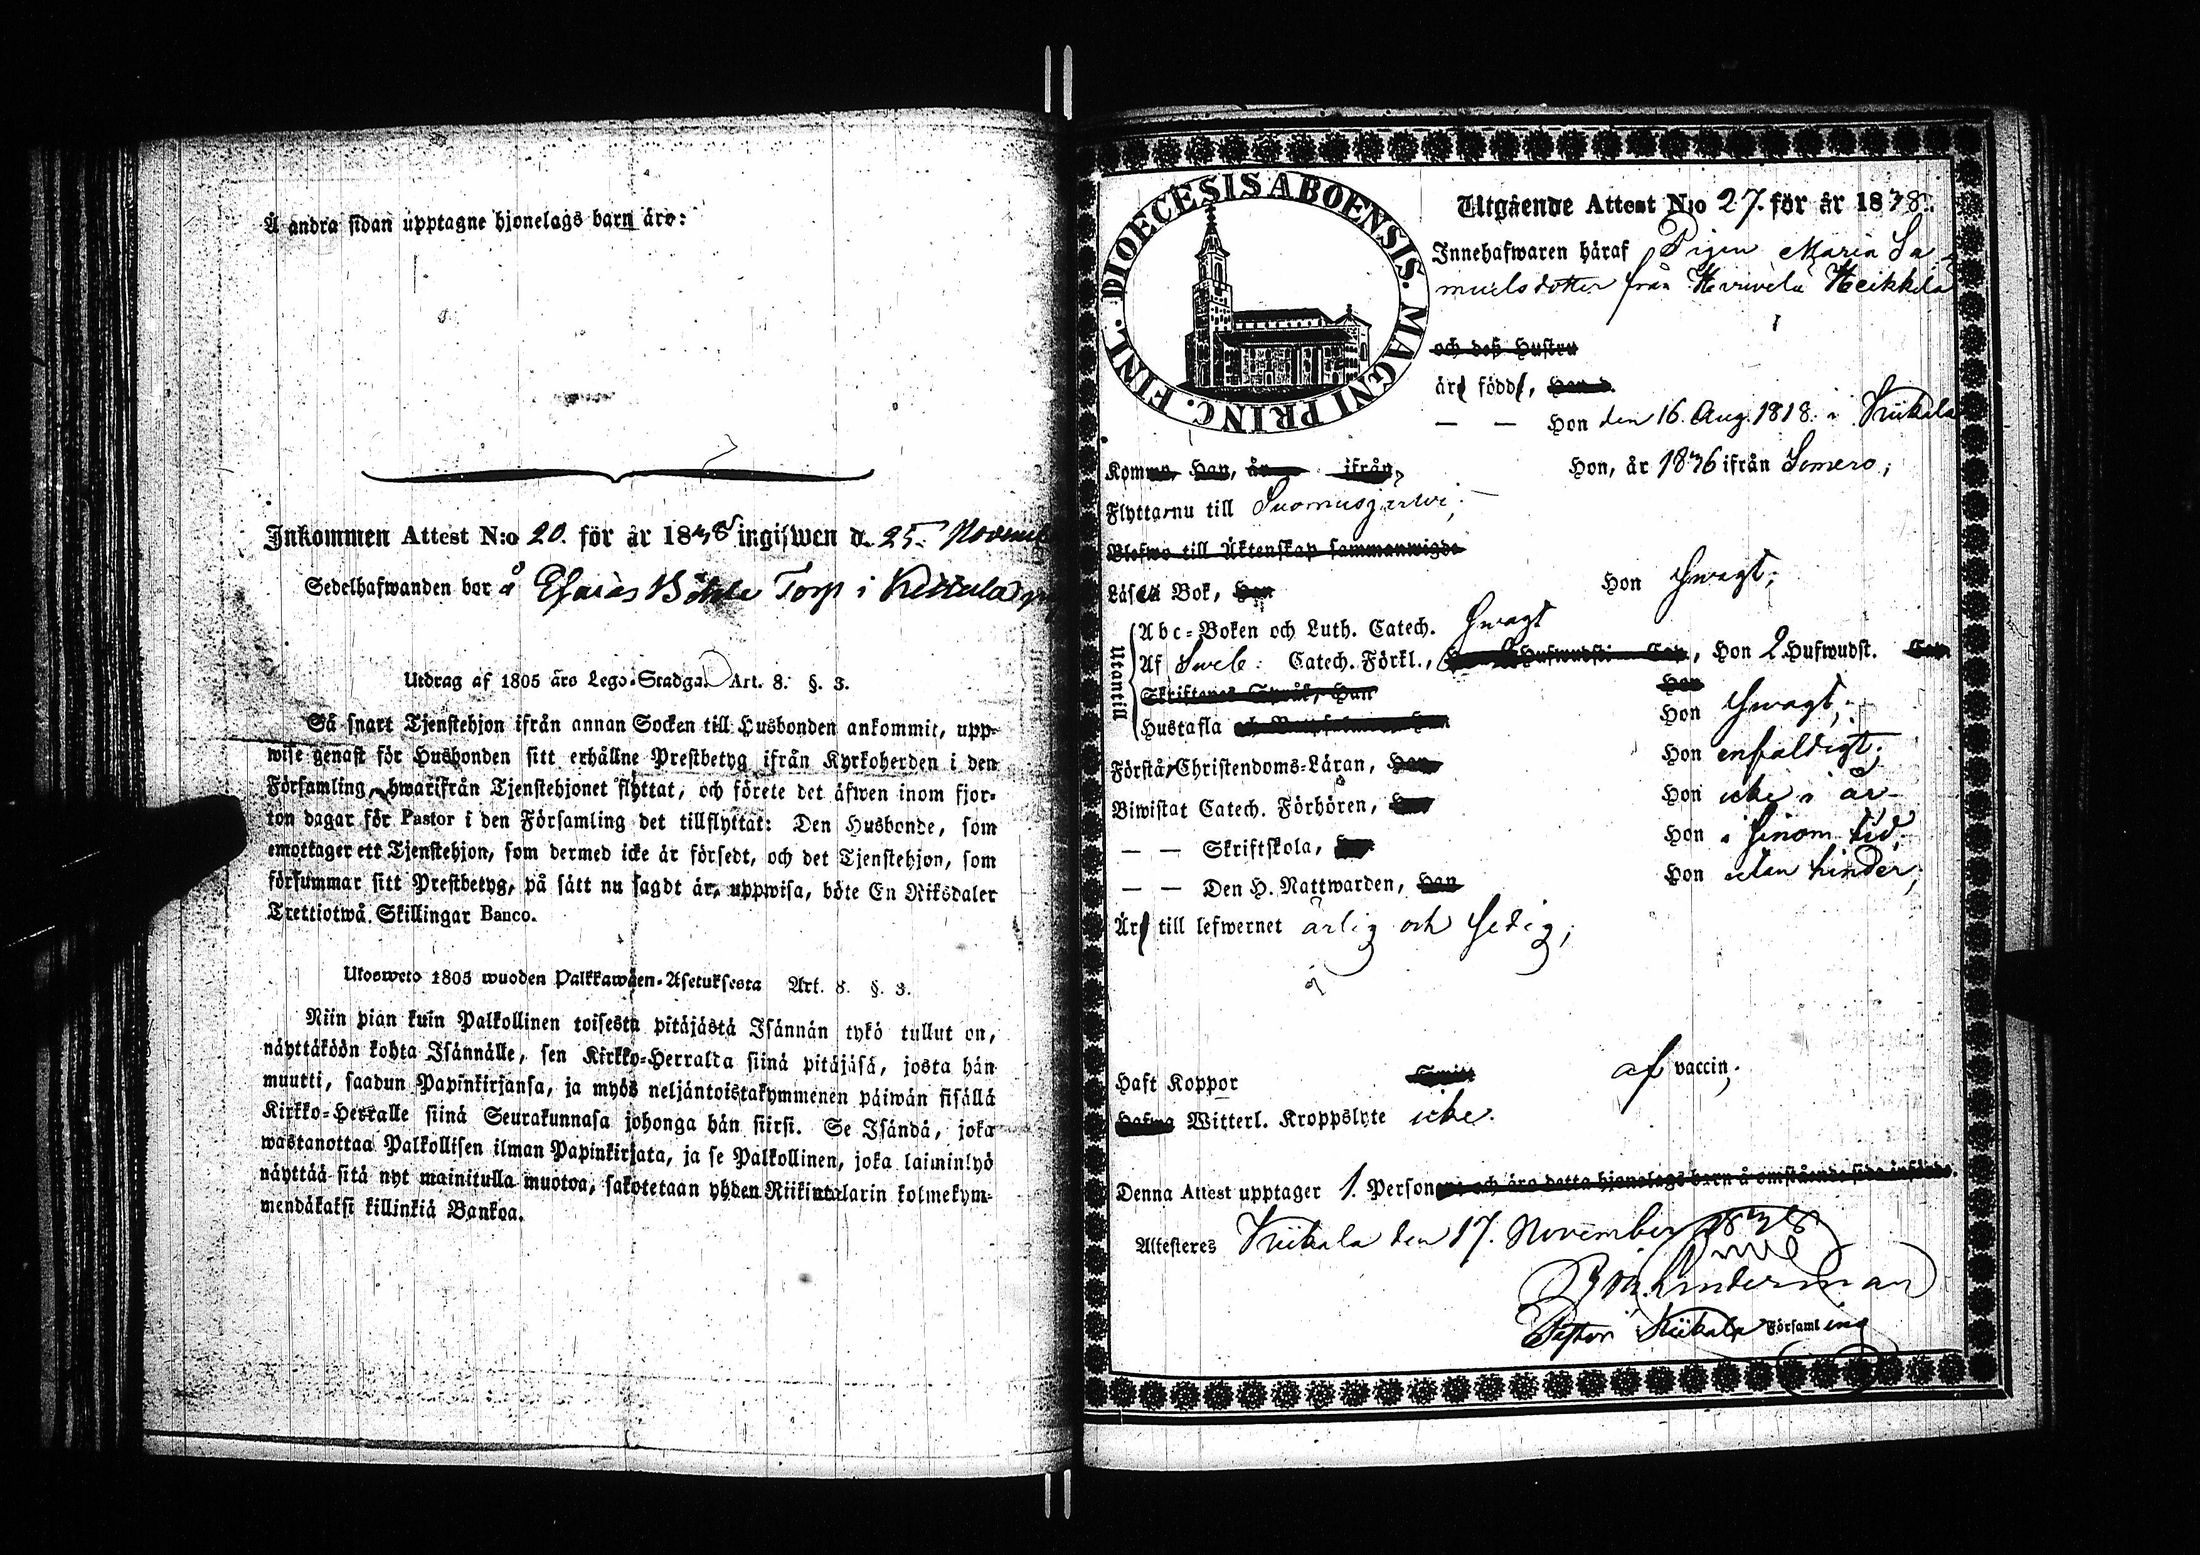 Å andra sidan upptagne hjonelags barn äro:
Inkommen Attest N:o 20. för år 1838 ingifwen d. 25. Novem
Sedelhafwanden bor å Esaias Torp i
Utdrag af 1805 års Lego-Stadga. Art. 8. §. 3.
Så snart Tjenstehjon ifrån annan Socken till Husbonden ankommit, upp-
wise genast för Husbonden sitt erhållne Prestbetyg ifrån Kyrkoherden i den
Församling, hwarifrån Tjenstehjonet flyttat, och förete det äfwen inom fjor-
ton dagar för Pastor i den Församling det tillflyttat: Den Husbonde, som
emottager ett Tjenstehjon, som dermed icke är försedt, och det Tjenstehjon, som
försummar sitt Prestbetyg, på sätt nu sagdt är, uppwisa, böte En Riksdaler
Trettiotwå Skillingar Banco.
Ulosweto 1805 wuoden Palkkawäen-Asetuksesta Art. 8. §. 3.
Niin pian kuin Palkollinen toisesta pitäjästä Isännän tykö tullut on,
näyttäköön kohta Isännälle, sen Kirkko-Herralta siinä pitäjäsä, josta hän
muutti, saadun Papinkirjansa, ja myös neljäntoistakymmenen päiwän sisällä
Kirkko-Herralle siinä Seurakunnasa johonga hän siirsi. Se Isändä, joka
wastanottaa Palkollisen ilman Papinkirjata, ja se Palkollinen, joka laiminlyö
näyttää sitä nyt mainitulla muotoa, sakotetaan yhden Riikintalarin kolmekym-
mendäkaksi killinkiä Bankoa.
DIOECESIS ABOENSIS. MAGNI PRINC. FINL.
Utgående Attest N:o 27. för år 1838.
Innehafwaren häraf Pigan Maria Sa-
muelsdotter från Heikkilä
och deß Hustru
är född,
— — Hon den 16. Aug. 1818. i Kiikala
Kommen Han, år ifrån, Hon, år 1836 ifrån Somero;
Flyttar nu till Suomusjärvi;
Blefwo till Äktenskap sammanwigde
Läser i Bok, Han Hon swagt;
Utantill
Abc-Boken och Luth. Catech. swagt
Af Sweb: Catech. Förkl., Hufwudst. Cap., Hon 2. Hufwudst. Cap.
Skriftenes Språk, Han Hon
Hustafla Hon swagt;
Förstår Christendoms-Läran, Han Hon enfaldigt;
Biwistat Catech. Förhören, Han Hon icke i år
— — Skriftskola, Han Hon i sinom tid
— — Den H. Nattwarden, Han Hon utan hinder;
Är till lefwernet ärlig och sedig;
Haft Koppor af vaccin;
Hafwa Witterl. Kroppslyte icke.
Denna Attest upptager 1. Person och äro detta hjonelags barn å omstående sida införde.
Attesteres Kiikala den 17. November 1838
Linderman
Pastor i Kiikala Församling